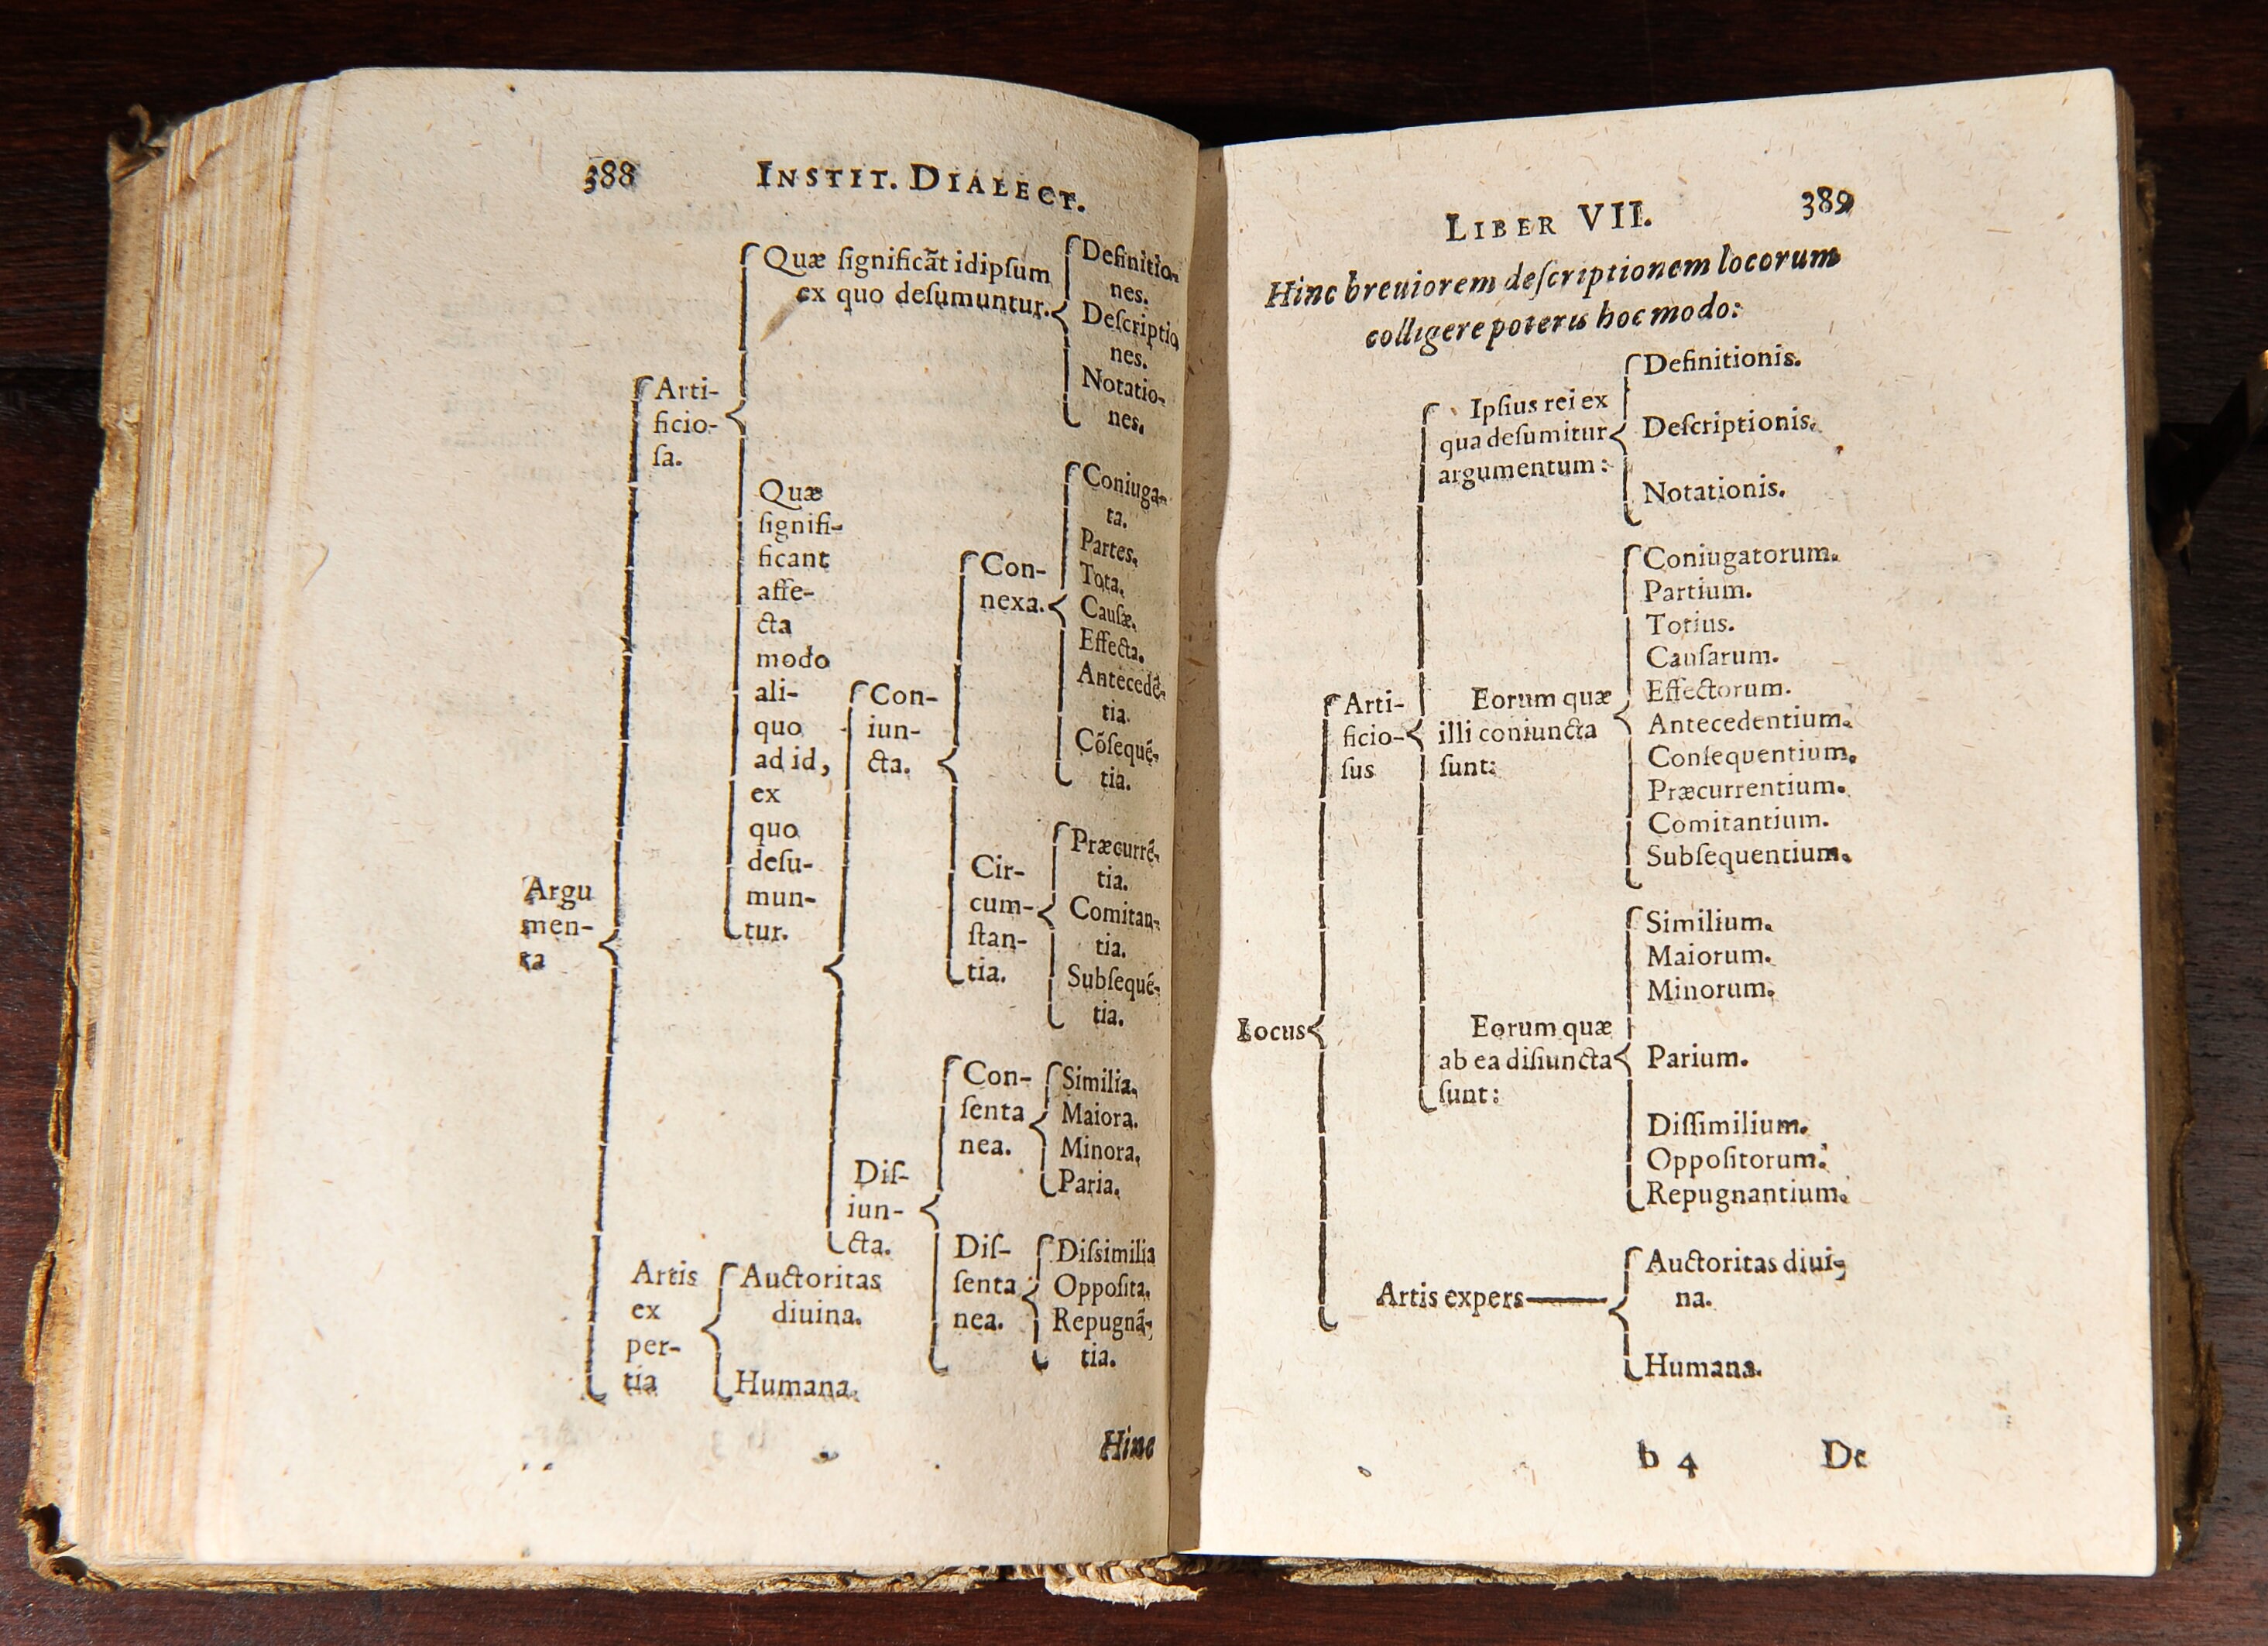 388 INSTIT. DIALECT.
Quæ ſignificãt idipſum
ex quo deſumuntur.
Definitio-
nes.
Deſcriptio
nes.
Notatio-
nes.
Arti-
ficio-
ſa.
Quæ
ſignifi-
ficant
affe-
cta
modo
ali-
quo
ad id,
ex
quo
deſu-
mun-
tur.
Con-
iun-
cta.
Con-
nexa.
Coniuga-
ta.
Partes.
Tota.
Cauſæ.
Effecta.
Antecedẽ-
tia.
Cõſequẽ-
tia.
Cir-
cum-
ſtan-
tia.
Præcurrẽ-
tia.
Comitan-
tia.
Subſequẽ-
tia.
Argu
men-
ta
Diſ-
iun-
cta.
Con-
ſenta
nea.
Similia.
Maiora.
Minora.
Paria.
Diſ-
ſenta
nea.
Diſsimilia
Oppoſita.
Repugnã-
tia.
Artis
ex
per-
tia
Auctoritas
diuina.
Humana.
Hinc
LIBER VII. 389
Hinc breuiorem deſcriptionem locorum
colligere poteris hoc modo:
Locus
Arti-
ficio-
ſus
Ipſius rei ex
qua deſumitur
argumentum:
Definitionis.
Deſcriptionis.
Notationis.
Eorum quæ
illi coniuncta
ſunt:
Coniugatorum.
Partium.
Totius.
Cauſarum.
Effectorum.
Antecedentium.
Conſequentium.
Præcurrentium.
Comitantium.
Subſequentium.
Eorum quæ
ab ea diſiuncta
ſunt:
Similium.
Maiorum.
Minorum.
Parium.
Diſſimilium.
Oppoſitorum.
Repugnantium.
Artis expers
Auctoritas diui-
na.
Humana.
b 4 De